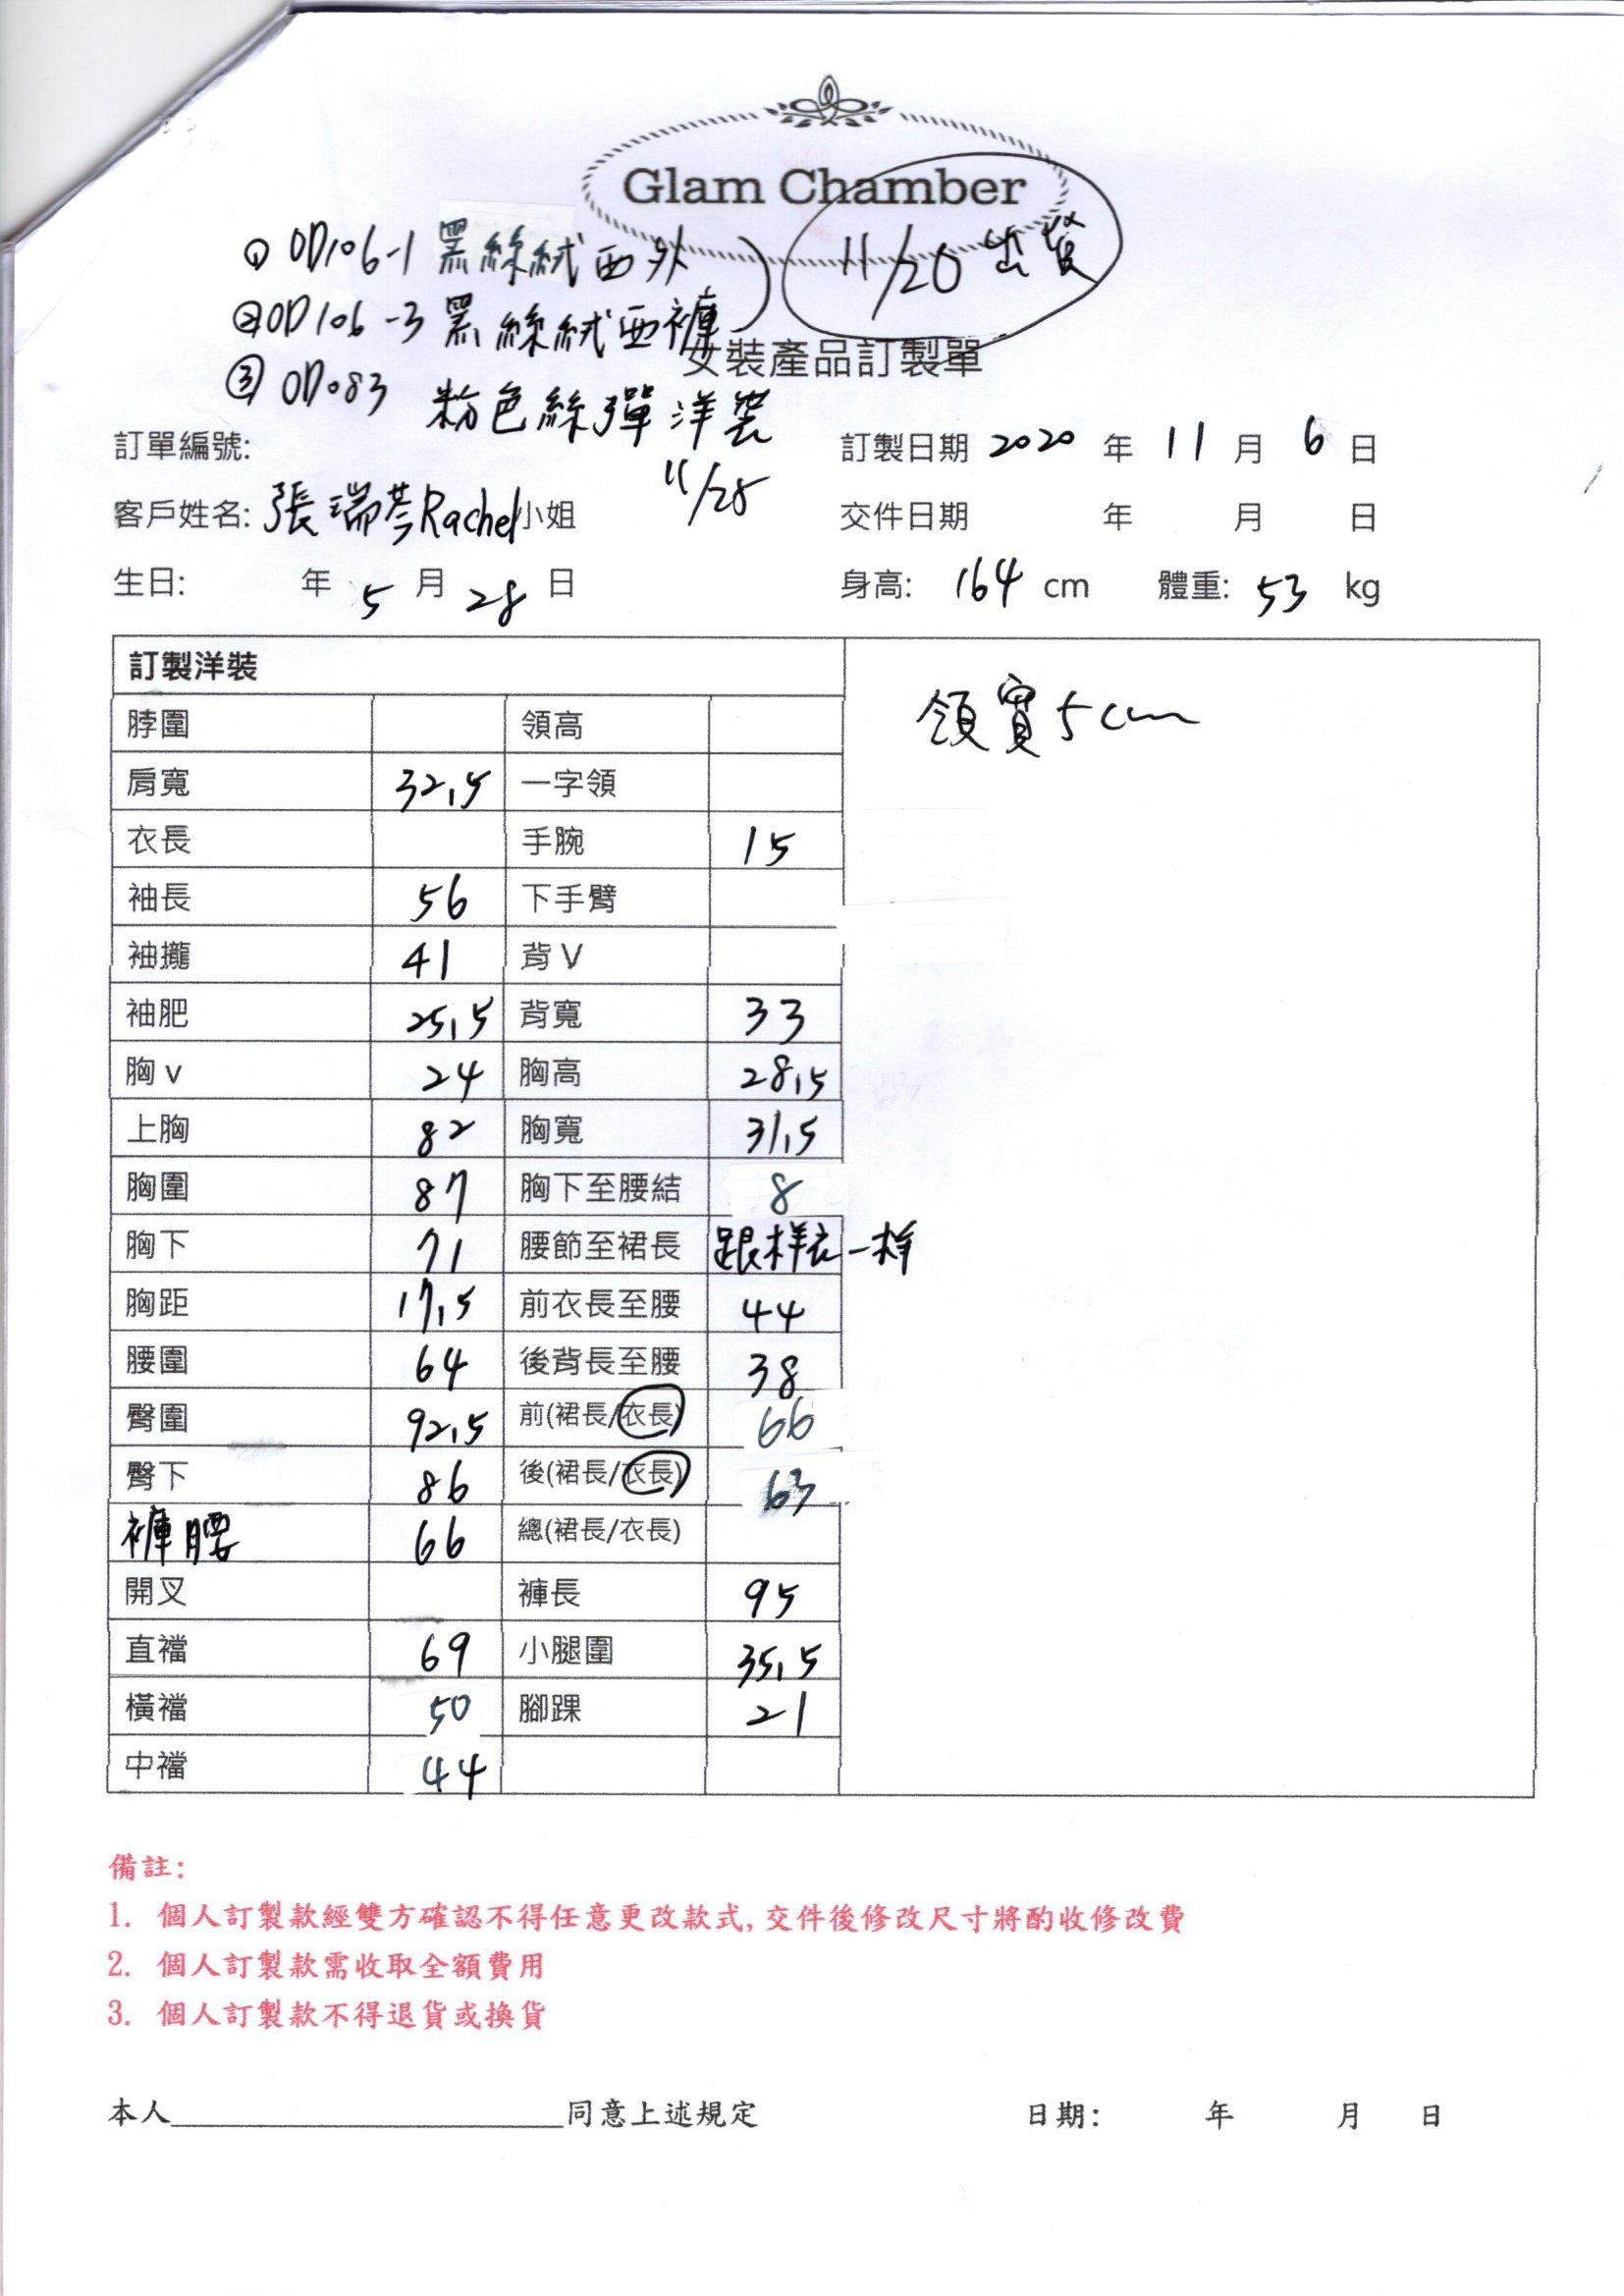 Glam Chamber
① OD106-1 黑絲絨西外
11/20 出貨
② OD106-3 黑絲絨西褲
女裝產品訂製單
③ OD083 粉色絲彈洋裝
訂單編號: 訂製日期 2020 年 11 月 6 日
11/28
客戶姓名: 張瑞芩Rachel小姐 交件日期 年 月 日
生日: 年 5 月 28 日 身高: 164 cm 體重: 53 kg
訂製洋裝
領寬5cm
脖圍 領高
肩寬 32.5 一字領
衣長 手腕 15
袖長 56 下手臂
袖攏 41 背 V
袖肥 25.5 背寬 33
胸 v 24 胸高 28.5
上胸 82 胸寬 31.5
胸圍 87 胸下至腰結 8
胸下 71 腰節至裙長 跟样衣一样
胸距 17.5 前衣長至腰 44
腰圍 64 後背長至腰 38
臀圍 92.5 前(裙長/衣長) 66
臀下 86 後(裙長/衣長) 63
褲腰 66 總(裙長/衣長)
開叉 褲長 95
直襠 69 小腿圍 35.5
橫襠 50 腳踝 21
中襠 44
備註:
1. 個人訂製款經雙方確認不得任意更改款式, 交件後修改尺寸將酌收修改費
2. 個人訂製款需收取全額費用
3. 個人訂製款不得退貨或換貨
本人____________________同意上述規定 日期: 年 月 日